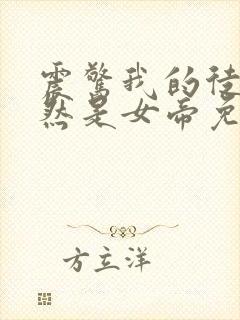 震驚我的徒
然是女帝免
方立洋